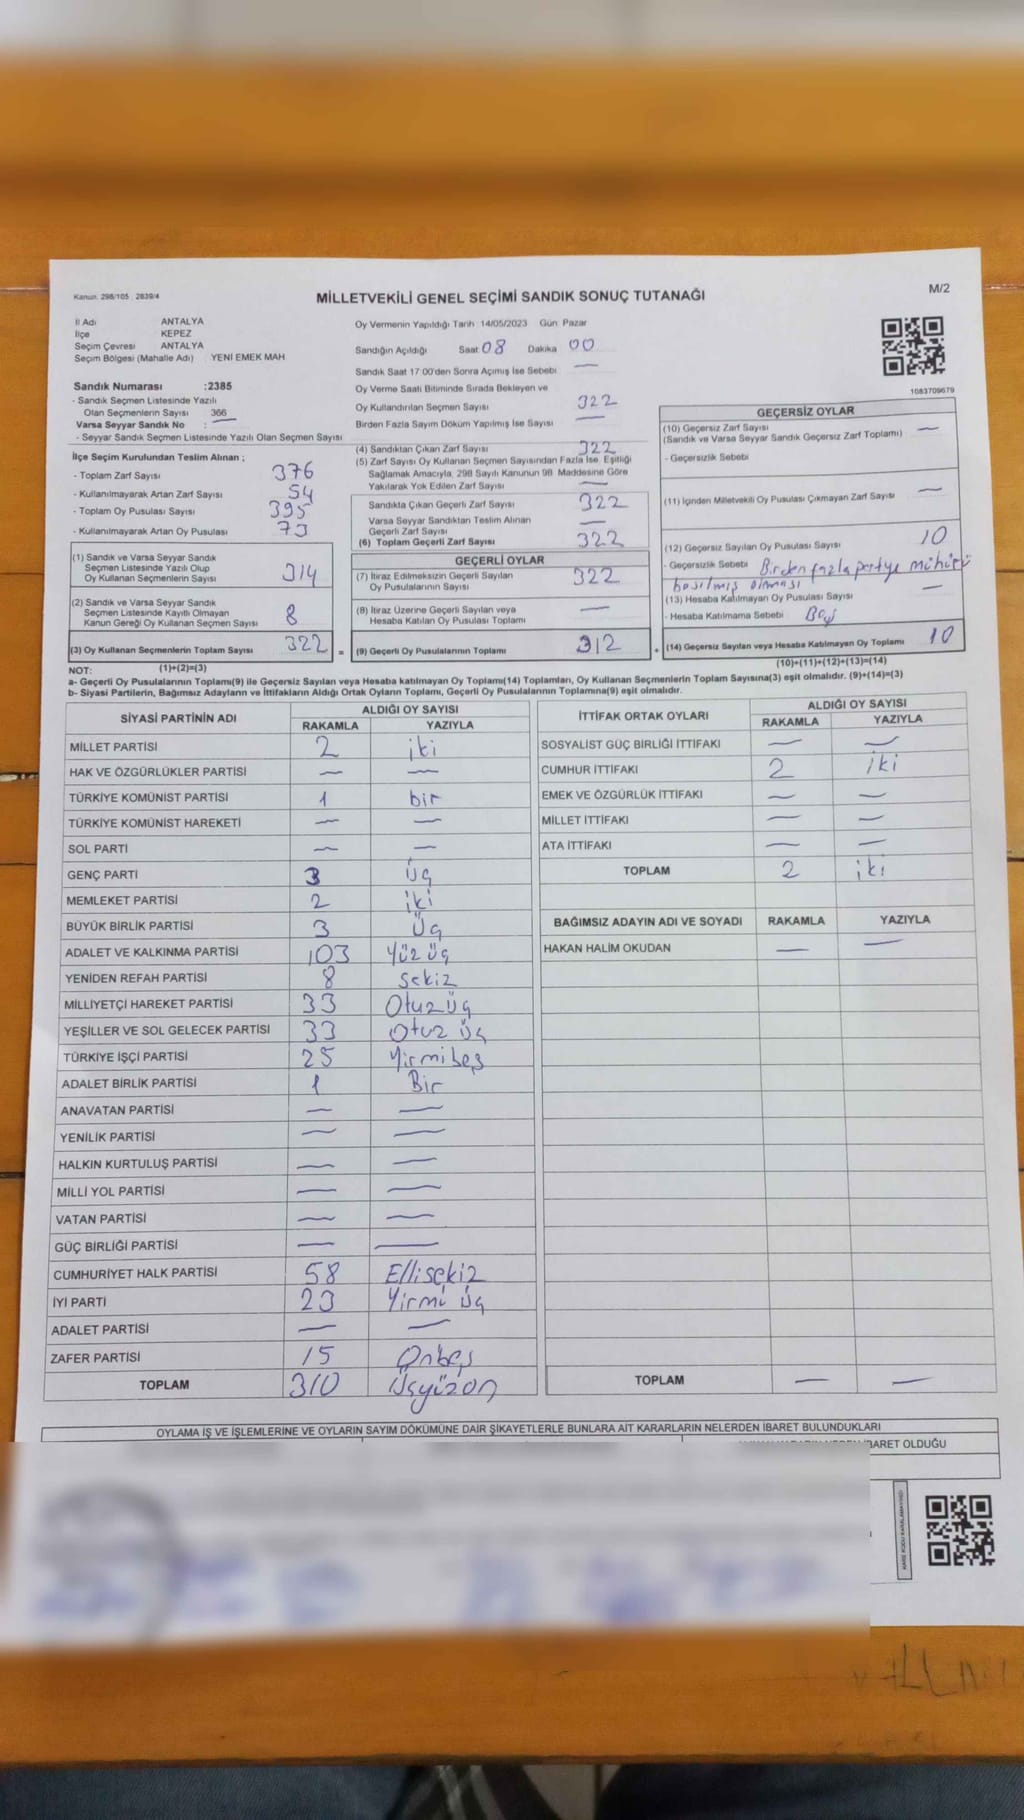 Kanun. 298/105 , 2839/4
MİLLETVEKİLİ GENEL SEÇİMİ SANDIK SONUÇ TUTANAĞI
M/2
İl Adı ANTALYA
İlçe KEPEZ
Seçim Çevresi ANTALYA
Seçim Bölgesi (Mahalle Adı) YENİ EMEK MAH
Oy Vermenin Yapıldığı Tarih 14/05/2023 Gün Pazar
Sandığın Açıldığı Saat 08 Dakika 00
Sandık Saat 17 00'den Sonra Açımış İse Sebebi —
Oy Verme Saati Bitiminde Sırada Bekleyen ve
Oy Kullandırılan Seçmen Sayısı 322
Birden Fazla Sayım Döküm Yapılmış İse Sayısı —
1083709679
Sandık Numarası :2385
- Sandık Seçmen Listesinde Yazılı
Olan Seçmenlerin Sayısı 366
Varsa Seyyar Sandık No : —
- Seyyar Sandık Seçmen Listesinde Yazılı Olan Seçmen Sayısı
İlçe Seçim Kurulundan Teslim Alınan ;
- Toplam Zarf Sayısı 376
- Kullanılmayarak Artan Zarf Sayısı 54
- Toplam Oy Pusulası Sayısı 395
- Kullanılmayarak Artan Oy Pusulası 73
(1) Sandık ve Varsa Seyyar Sandık
Seçmen Listesinde Yazılı Olup
Oy Kullanan Seçmenlerin Sayısı 314
(2) Sandık ve Varsa Seyyar Sandık
Seçmen Listesinde Kayıtlı Olmayan
Kanun Gereği Oy Kullanan Seçmen Sayısı 8
(3) Oy Kullanan Seçmenlerin Toplam Sayısı 322 =
(4) Sandıktan Çıkan Zarf Sayısı 322
(5) Zarf Sayısı Oy Kullanan Seçmen Sayısından Fazla İse, Eşitliği
Sağlamak Amacıyla, 298 Sayılı Kanunun 98. Maddesine Göre
Yakılarak Yok Edilen Zarf Sayısı —
Sandıkta Çıkan Geçerli Zarf Sayısı 322
Varsa Seyyar Sandıktan Teslim Alınan
Geçerli Zarf Sayısı —
(6) Toplam Geçerli Zarf Sayısı 322
GEÇERLİ OYLAR
(7) İtiraz Edilmeksizin Geçerli Sayılan
Oy Pusulalarının Sayısı 322
(8) İtiraz Üzerine Geçerli Sayılan veya
Hesaba Katılan Oy Pusulası Toplamı —
(9) Geçerli Oy Pusulalarının Toplamı 312 +
GEÇERSİZ OYLAR
(10) Geçersiz Zarf Sayısı —
(Sandık ve Varsa Seyyar Sandık Geçersiz Zarf Toplamı)
- Geçersizlik Sebebi
(11) İçinden Milletvekili Oy Pusulası Çıkmayan Zarf Sayısı —
(12) Geçersiz Sayılan Oy Pusulası Sayısı 10
- Geçersizlik Sebebi Birden fazla partiye mühürü
basılmış olması
(13) Hesaba Katılmayan Oy Pusulası Sayısı —
- Hesaba Katılmama Sebebi
(14) Geçersiz Sayılan veya Hesaba Katılmayan Oy Toplamı 10
NOT: (1)+(2)=(3) (10)+(11)+(12)+(13)=(14)
a- Geçerli Oy Pusulalarının Toplamı(9) ile Geçersiz Sayılan veya Hesaba katılmayan Oy Toplamı(14) Toplamları, Oy Kullanan Seçmenlerin Toplam Sayısına(3) eşit olmalıdır. (9)+(14)=(3)
b- Siyasi Partilerin, Bağımsız Adayların ve İttifakların Aldığı Ortak Oyların Toplamı, Geçerli Oy Pusulalarının Toplamına(9) eşit olmalıdır.
SİYASİ PARTİNİN ADI ALDIĞI OY SAYISI
RAKAMLA YAZIYLA
MİLLET PARTİSİ 2 iki
HAK VE ÖZGÜRLÜKLER PARTİSİ — —
TÜRKİYE KOMÜNİST PARTİSİ 1 bir
TÜRKİYE KOMÜNİST HAREKETİ — —
SOL PARTİ — —
GENÇ PARTİ 3 Üç
MEMLEKET PARTİSİ 2 iki
BÜYÜK BİRLİK PARTİSİ 3 Üç
ADALET VE KALKINMA PARTİSİ 103 Yüz üç
YENİDEN REFAH PARTİSİ 8 sekiz
MİLLİYETÇİ HAREKET PARTİSİ 33 Otuz üç
YEŞİLLER VE SOL GELECEK PARTİSİ 33 Otuz üç
TÜRKİYE İŞÇİ PARTİSİ 25 Yirmi beş
ADALET BİRLİK PARTİSİ 1 Bir
ANAVATAN PARTİSİ — —
YENİLİK PARTİSİ — —
HALKIN KURTULUŞ PARTİSİ — —
MİLLİ YOL PARTİSİ — —
VATAN PARTİSİ — —
GÜÇ BİRLİĞİ PARTİSİ — —
CUMHURİYET HALK PARTİSİ 58 Ellisekiz
İYİ PARTİ 23 Yirmi üç
ADALET PARTİSİ — —
ZAFER PARTİSİ 15 Onbeş
TOPLAM 310 Üçyüzon
İTTİFAK ORTAK OYLARI ALDIĞI OY SAYISI
RAKAMLA YAZIYLA
SOSYALİST GÜÇ BİRLİĞİ İTTİFAKI — —
CUMHUR İTTİFAKI 2 iki
EMEK VE ÖZGÜRLÜK İTTİFAKI — —
MİLLET İTTİFAKI — —
ATA İTTİFAKI — —
TOPLAM 2 iki
BAĞIMSIZ ADAYIN ADI VE SOYADI RAKAMLA YAZIYLA
HAKAN HALİM OKUDAN — —
TOPLAM — —
OYLAMA İŞ VE İŞLEMLERİNE VE OYLARIN SAYIM DÖKÜMÜNE DAİR ŞİKAYETLERLE BUNLARA AİT KARARLARIN NELERDEN İBARET BULUNDUKLARI
İBARET OLDUĞU